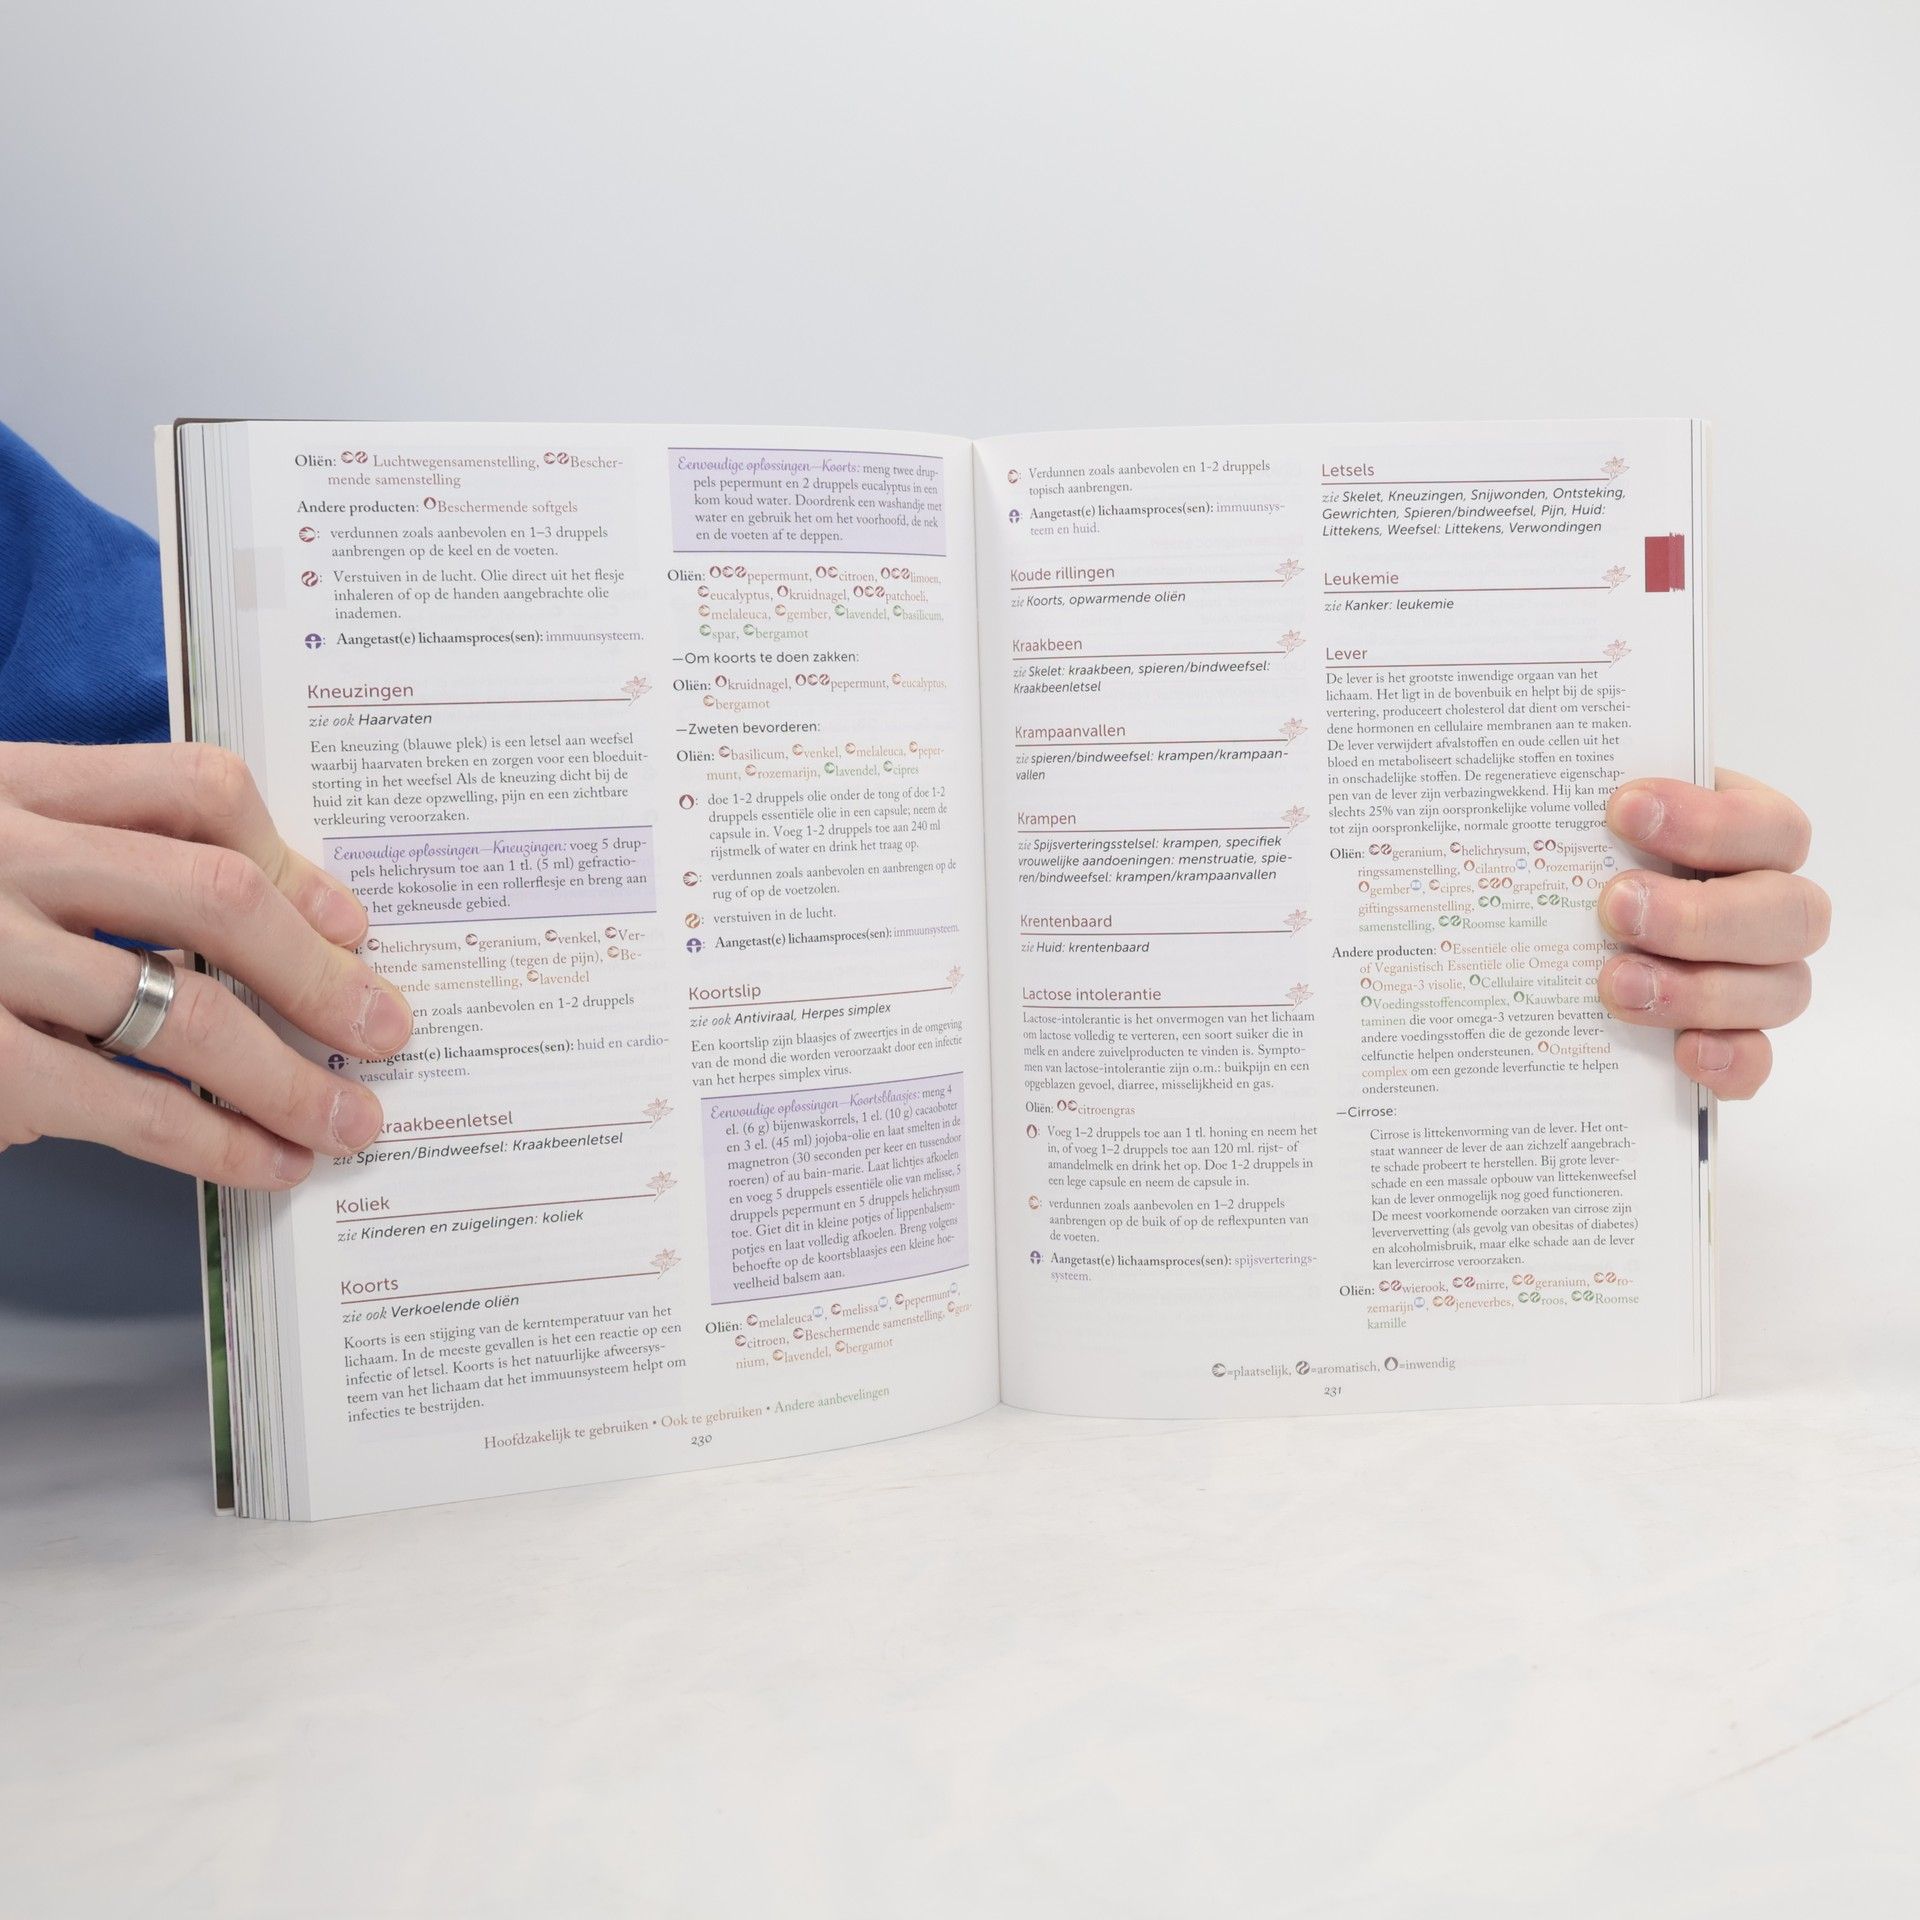 Oliën: Luchtwegensamenstelling, Bescher-
mende samenstelling
Andere producten: Beschermende softgels
: verdunnen zoals aanbevolen en 1–3 druppels
aanbrengen op de keel en de voeten.
: Verstuiven in de lucht. Olie direct uit het flesje
inhaleren of op de handen aangebrachte olie
inademen.
: Aangetast(e) lichaamsproces(sen): immuunsysteem.
Kneuzingen
zie ook Haarvaten
Een kneuzing (blauwe plek) is een letsel aan weefsel
waarbij haarvaten breken en zorgen voor een bloeduit-
storting in het weefsel Als de kneuzing dicht bij de
huid zit kan deze opzwelling, pijn en een zichtbare
verkleuring veroorzaken.
Eenvoudige oplossingen—Kneuzingen: voeg 5 drup-
pels helichrysum toe aan 1 tl. (5 ml) gefractio-
neerde kokosolie in een rollerflesje en breng aan
het gekneusde gebied.
helichrysum, geranium, venkel, Ver-
chtende samenstelling (tegen de pijn), Be-
ende samenstelling, lavendel
en zoals aanbevolen en 1-2 druppels
anbrengen.
Aangetast(e) lichaamsproces(sen): huid en cardio-
vasculair systeem.
raakbeenletsel
zie Spieren/Bindweefsel: Kraakbeenletsel
Koliek
zie Kinderen en zuigelingen: koliek
Koorts
zie ook Verkoelende oliën
Koorts is een stijging van de kerntemperatuur van het
lichaam. In de meeste gevallen is het een reactie op een
infectie of letsel. Koorts is het natuurlijke afweersys-
teem van het lichaam dat het immuunsysteem helpt om
infecties te bestrijden.
Eenvoudige oplossingen—Koorts: meng twee drup-
pels pepermunt en 2 druppels eucalyptus in een
kom koud water. Doordrenk een washandje met
water en gebruik het om het voorhoofd, de nek
en de voeten af te deppen.
Oliën: pepermunt, citroen, limoen,
eucalyptus, kruidnagel, patchoeli,
melaleuca, gember, lavendel, basilicum,
spar, bergamot
—Om koorts te doen zakken:
Oliën: kruidnagel, pepermunt, eucalyptus,
bergamot
—Zweten bevorderen:
Oliën: basilicum, venkel, melaleuca, peper-
munt, rozemarijn, lavendel, cipres
: doe 1-2 druppels olie onder de tong of doe 1-2
druppels essentiële olie in een capsule; neem de
capsule in. Voeg 1-2 druppels toe aan 240 ml
rijstmelk of water en drink het traag op.
: verdunnen zoals aanbevolen en aanbrengen op de
rug of op de voetzolen.
: verstuiven in de lucht.
: Aangetast(e) lichaamsproces(sen): immuunsysteem.
Koortslip
zie ook Antiviraal, Herpes simplex
Een koortslip zijn blaasjes of zweertjes in de omgeving
van de mond die worden veroorzaakt door een infectie
van het herpes simplex virus.
Eenvoudige oplossingen—Koortsblaasjes: meng 4
el. (6 g) bijenwaskorrels, 1 el. (10 g) cacaoboter
en 3 el. (45 ml) jojoba-olie en laat smelten in de
magnetron (30 seconden per keer en tussendoor
roeren) of au bain-marie. Laat lichtjes afkoelen
en voeg 5 druppels essentiële olie van melisse, 5
druppels pepermunt en 5 druppels helichrysum
toe. Giet dit in kleine potjes of lippenbalsem-
potjes en laat volledig afkoelen. Breng volgens
behoefte op de koortsblaasjes een kleine hoe-
veelheid balsem aan.
Oliën: melaleuca, melissa, pepermunt,
citroen, Beschermende samenstelling, gera-
nium, lavendel, bergamot
Hoofdzakelijk te gebruiken • Ook te gebruiken • Andere aanbevelingen
230
: Verdunnen zoals aanbevolen en 1-2 druppels
topisch aanbrengen.
: Aangetast(e) lichaamsproces(sen): immuunsys-
teem en huid.
Koude rillingen
zie Koorts, opwarmende oliën
Kraakbeen
zie Skelet: kraakbeen, spieren/bindweefsel:
Kraakbeenletsel
Krampaanvallen
zie spieren/bindweefsel: krampen/krampaan-
vallen
Krampen
zie Spijsverteringsstelsel: krampen, specifiek
vrouwelijke aandoeningen: menstruatie, spie-
ren/bindweefsel: krampen/krampaanvallen
Krentenbaard
zie Huid: krentenbaard
Lactose intolerantie
Lactose-intolerantie is het onvermogen van het lichaam
om lactose volledig te verteren, een soort suiker die in
melk en andere zuivelproducten te vinden is. Sympto-
men van lactose-intolerantie zijn o.m.: buikpijn en een
opgeblazen gevoel, diarree, misselijkheid en gas.
Oliën: citroengras
: Voeg 1–2 druppels toe aan 1 tl. honing en neem het
in, of voeg 1–2 druppels toe aan 120 ml. rijst- of
amandelmelk en drink het op. Doe 1-2 druppels in
een lege capsule en neem de capsule in.
: verdunnen zoals aanbevolen en 1–2 druppels
aanbrengen op de buik of op de reflexpunten van
de voeten.
: Aangetast(e) lichaamsproces(sen): spijsverterings-
systeem.
Letsels
zie Skelet, Kneuzingen, Snijwonden, Ontsteking,
Gewrichten, Spieren/bindweefsel, Pijn, Huid:
Littekens, Weefsel: Littekens, Verwondingen
Leukemie
zie Kanker: leukemie
Lever
De lever is het grootste inwendige orgaan van het
lichaam. Het ligt in de bovenbuik en helpt bij de spijs-
vertering, produceert cholesterol dat dient om verschei-
dene hormonen en cellulaire membranen aan te maken.
De lever verwijdert afvalstoffen en oude cellen uit het
bloed en metaboliseert schadelijke stoffen en toxines
in onschadelijke stoffen. De regeneratieve eigenschap-
pen van de lever zijn verbazingwekkend. Hij kan met
slechts 25% van zijn oorspronkelijke volume volled
tot zijn oorspronkelijke, normale grootte teruggroe
Oliën: geranium, helichrysum, Spijsverte-
ringssamenstelling, cilantro, rozemarijn,
gember, cipres, grapefruit, Ont
giftingssamenstelling, mirre, Rustge
samenstelling, Roomse kamille
Andere producten: Essentiële olie omega complex
of Veganistisch Essentiële olie Omega compl
Omega-3 visolie, Cellulaire vitaliteit co
Voedingsstoffencomplex, Kauwbare mu
taminen die voor omega-3 vetzuren bevatten e
andere voedingsstoffen die de gezonde lever-
celfunctie helpen ondersteunen. Ontgiftend
complex om een gezonde leverfunctie te helpen
ondersteunen.
—Cirrose:
Cirrose is littekenvorming van de lever. Het ont-
staat wanneer de lever de aan zichzelf aangebrach-
te schade probeert te herstellen. Bij grote lever-
schade en een massale opbouw van littekenweefsel
kan de lever onmogelijk nog goed functioneren.
De meest voorkomende oorzaken van cirrose zijn
leververvetting (als gevolg van obesitas of diabetes)
en alcoholmisbruik, maar elke schade aan de lever
kan levercirrose veroorzaken.
Oliën: wierook, mirre, geranium, ro-
zemarijn, jeneverbes, roos, Roomse
kamille
=plaatselijk, =aromatisch, =inwendig
231